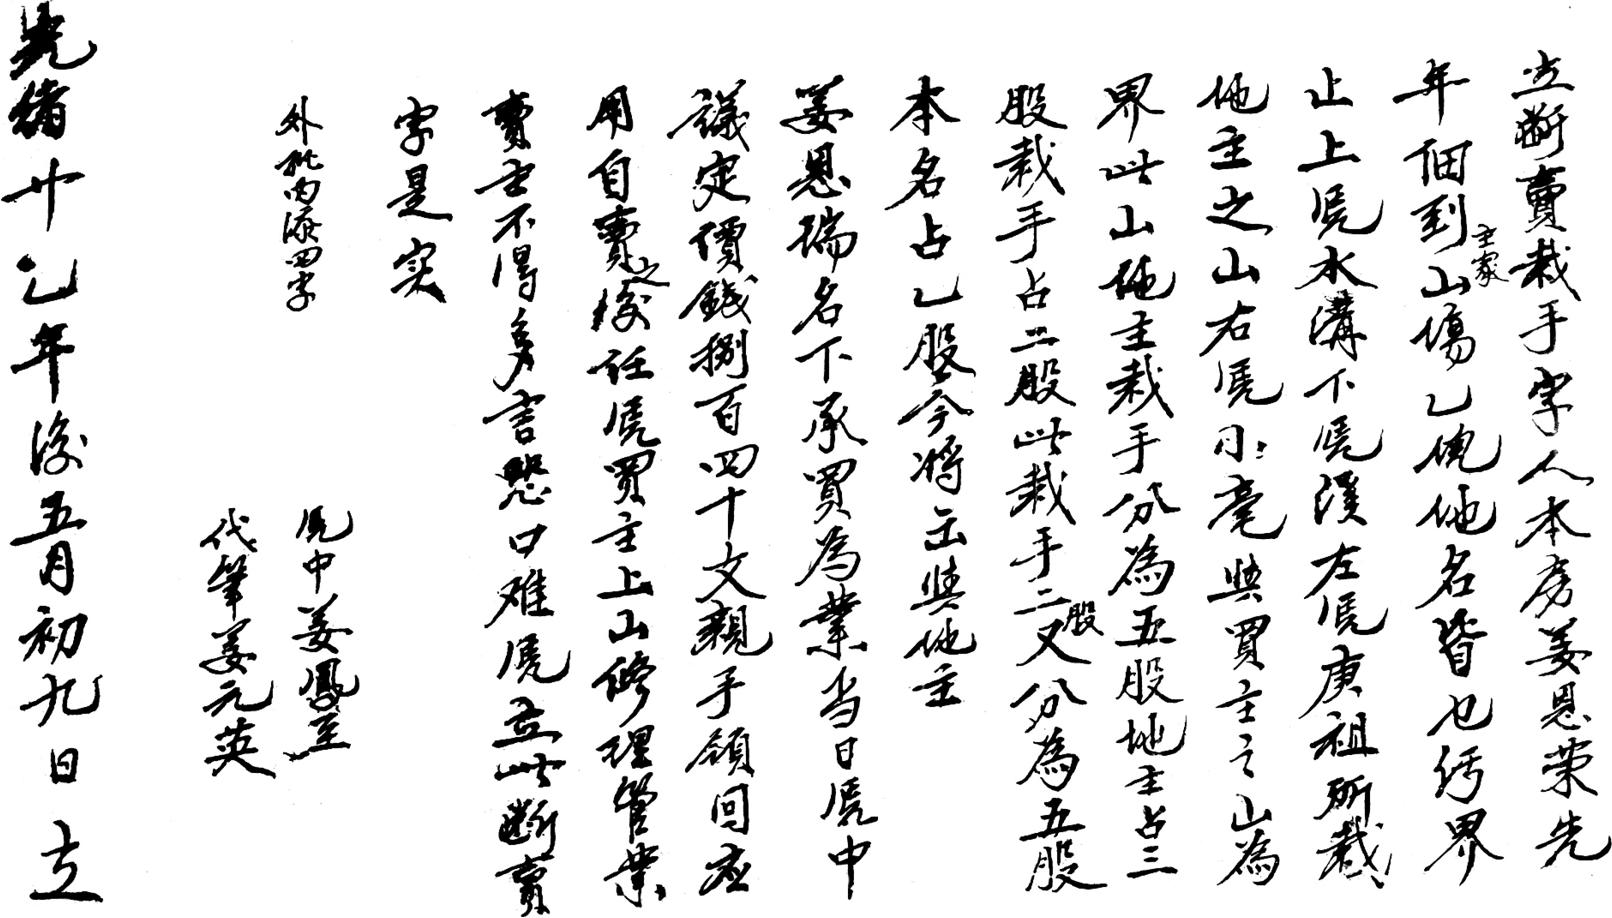 立断賣栽手字人本房姜恩荣先
年佃到主家山塲乙塊地名皆也污界
止上凴水溝下凴溪左凴庚祖所栽
地主之山右凴小毫與買主之山為
界此山地主栽手分為五股地主占三
股栽手占二股此栽手二股又分為五股
本名占乙股今將出與地主
姜恩瑞名下承買為業当日凴中
議定價錢捌百四十文親手領回应
用自賣之後任凴買主上山修理管業
賣主不得多言恐口难凴立此断賣
字是实
外批内添四字
凴中姜鳳至
代筆姜元英
光緒廿乙年後五月初九日立